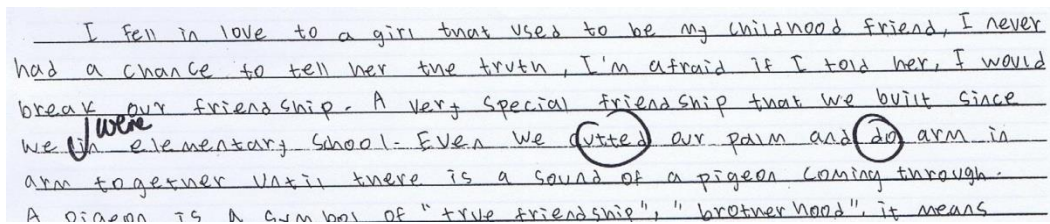 I fell in love to a girl that used to be my childhood friend, I never
had a chance to tell her the truth, I'm afraid if I told her, I would
break our friendship. A very special friendship that we built since
were
we in elementary school. Even we cutted our palm and do arm in
arm together until there is a sound of a pigeon coming through.
A pigeon is a symbol of "true friendship", "brotherhood", it means